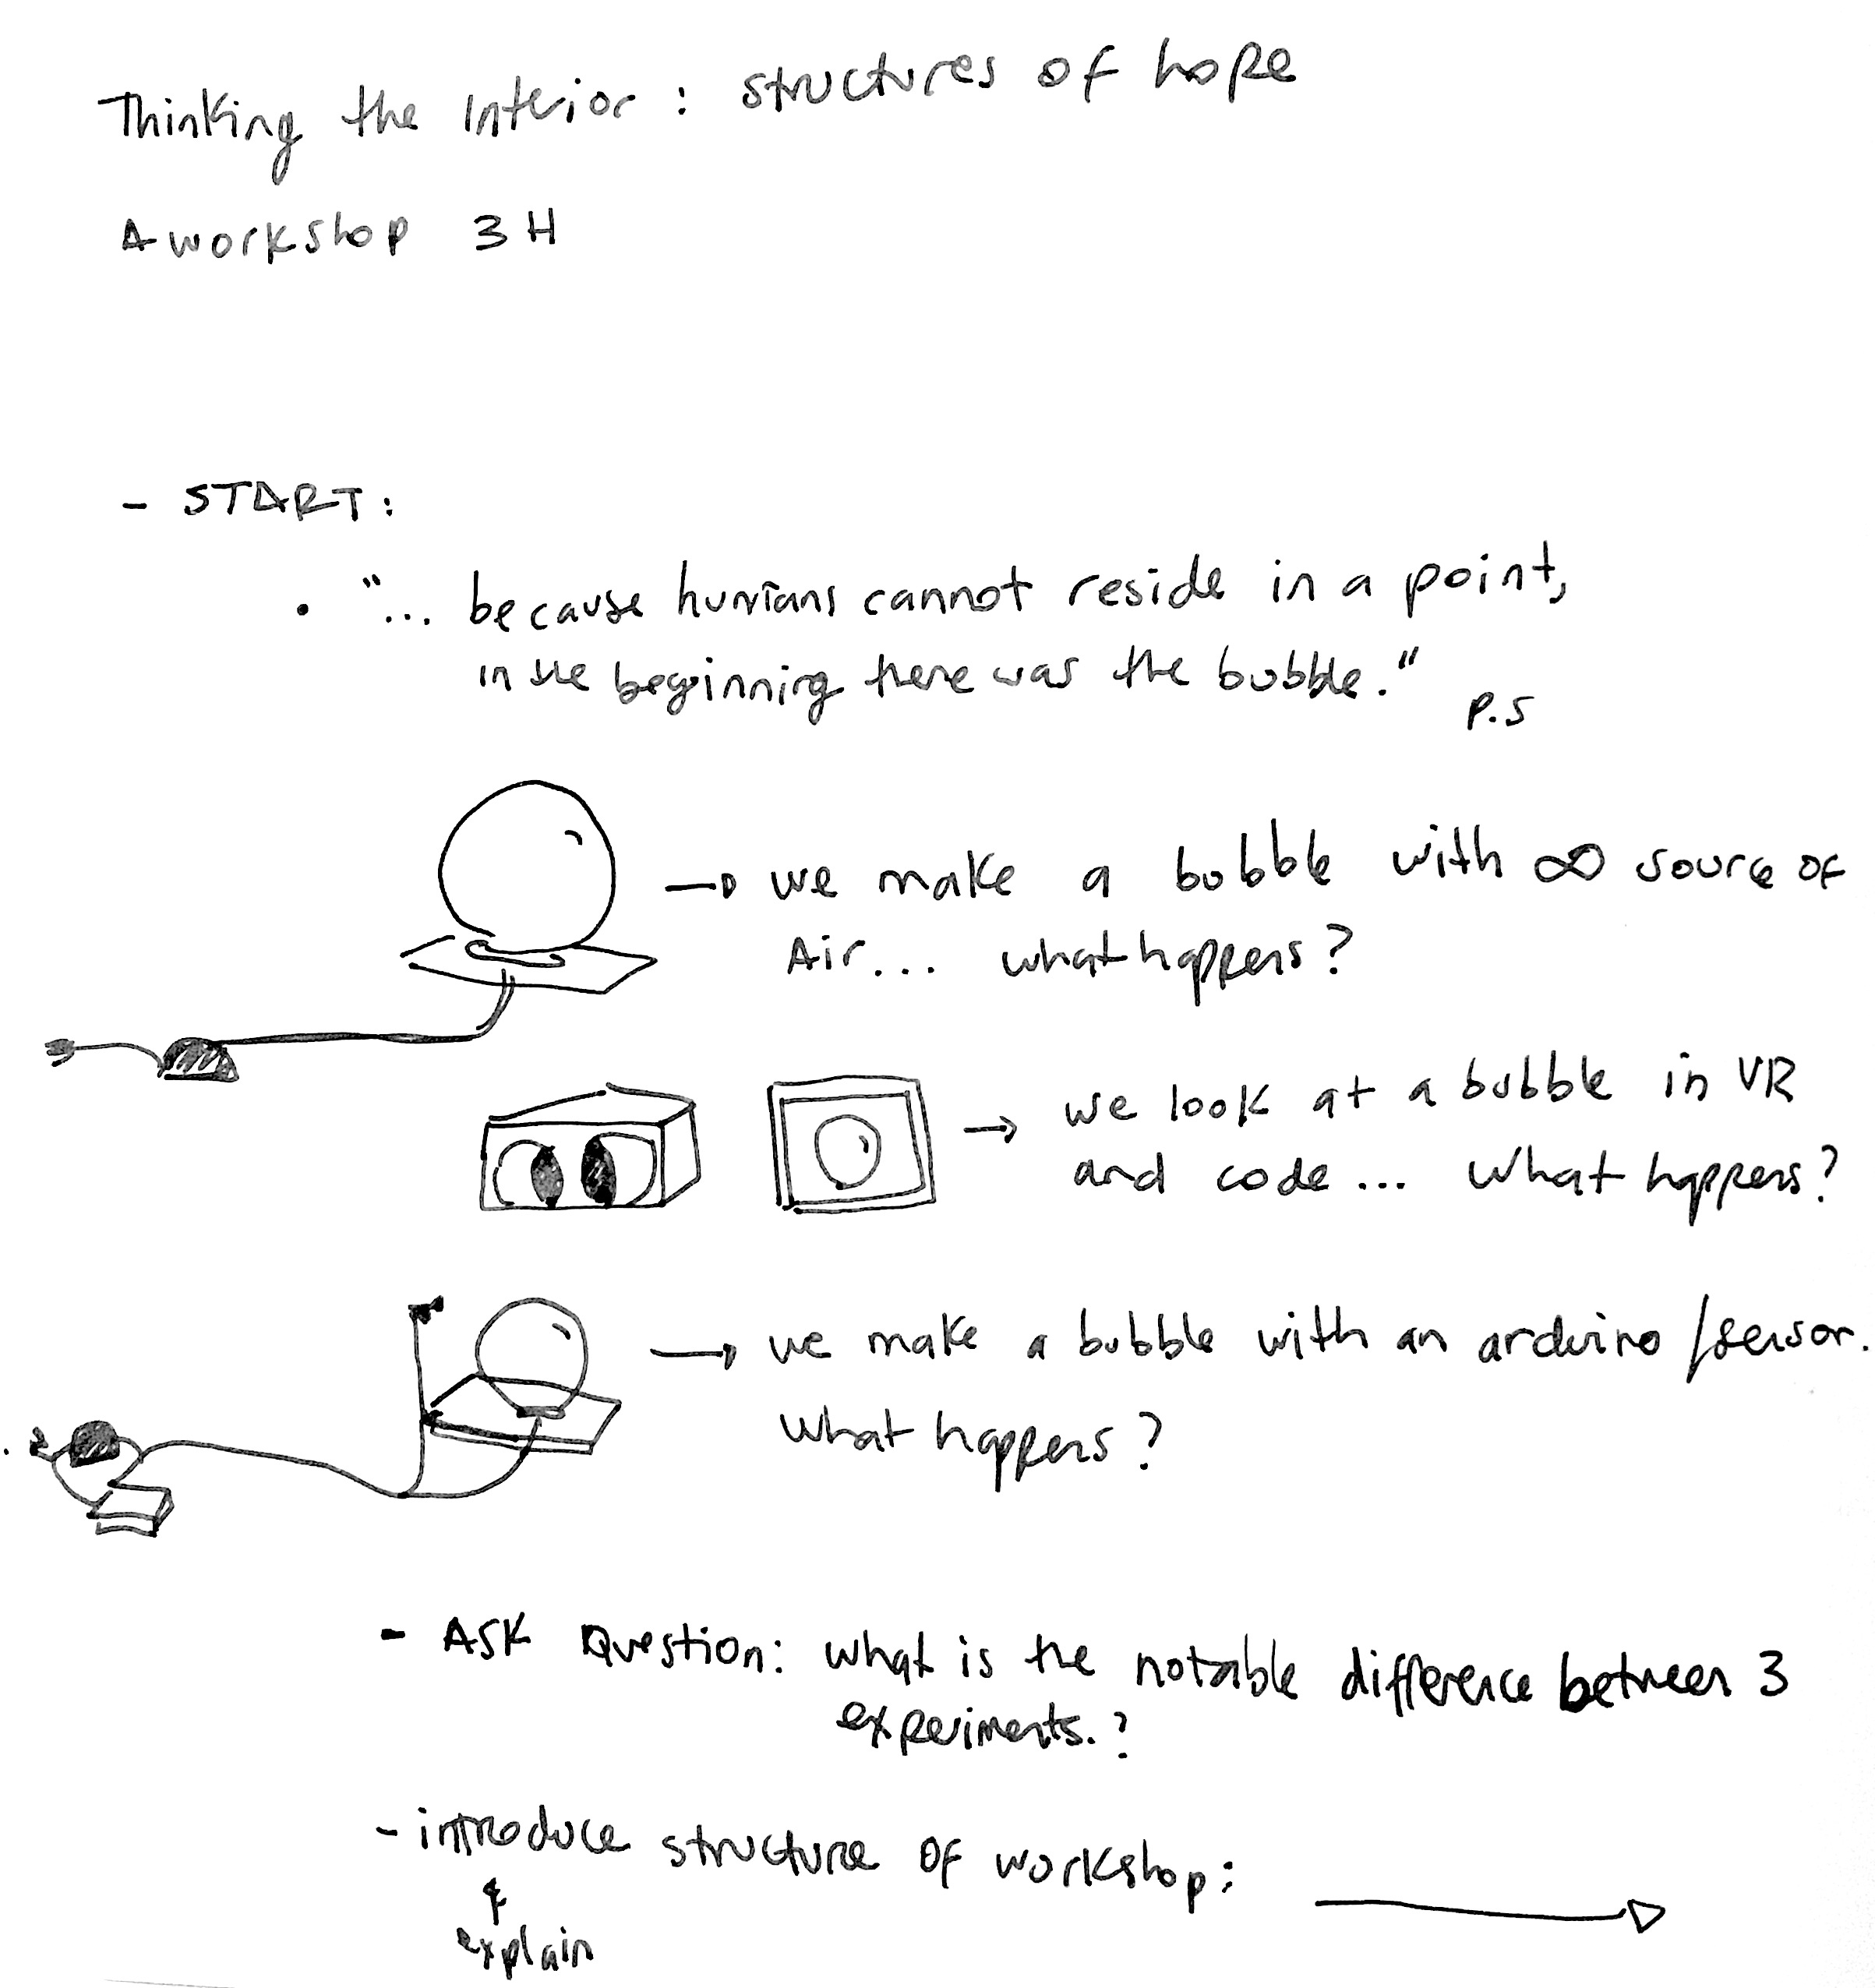 Thinking the Interior : structures of hope
A workshop 3H
- START:
• "... because humans cannot reside in a point,
in the beginning there was the bubble."
P.S
→ we make a bubble with ∞ source of
Air... what happens?
→ we look at a bubble in VR
and code... what happens?
→ we make a bubble with an arduino /sensor.
what happens?
- ASK Question: what is the notable difference between 3
experiments.?
- introduce structure of workshop: →
&
explain